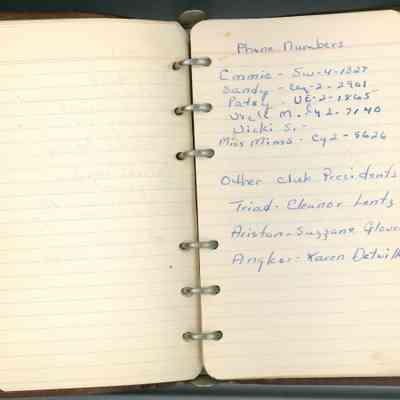 Phone Numbers
Emmie - Sw-4-1327
Sandy - Cy-2-2961
Patsy - UE-2-1865
M. Cy 2-7140
Vicki S. -
Miss Mims - Cy2-5626
Other Club Presidents
Triad - Eleanor Lentz
Ariston - Suzzane Glover
Angkor - Karen Detwil